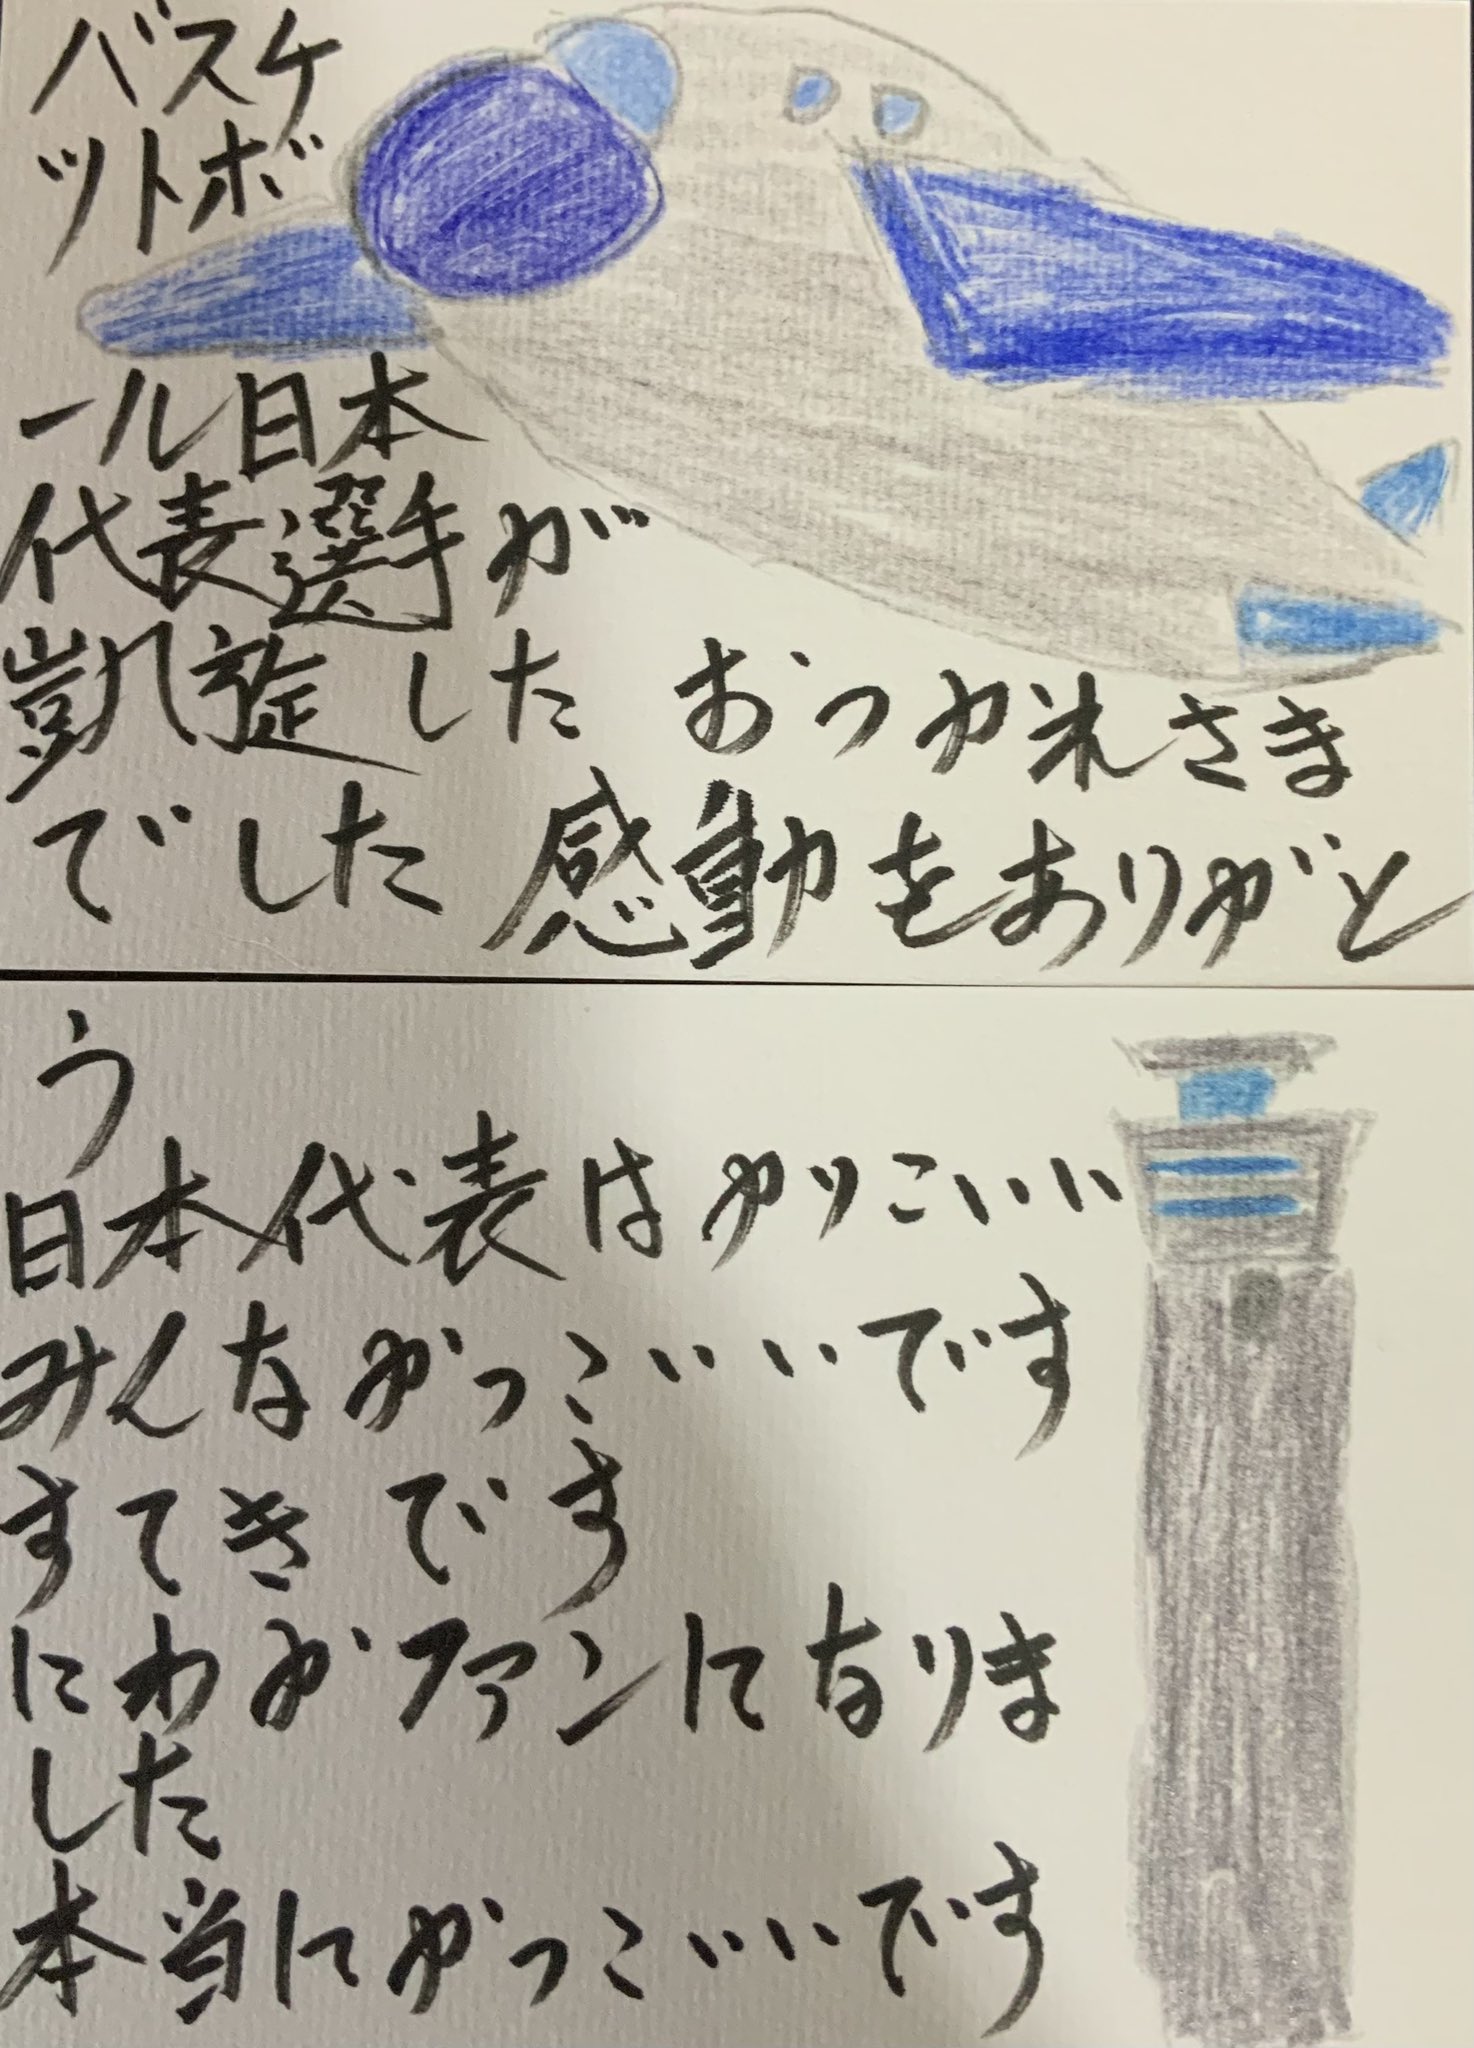 バスケ
ットボ
ール日本
代表選手が
凱旋した おつかれさま
でした 感動をありがと
う
日本代表はかっこいい
みんなかっこいいです
すてきです
にわかファンになりま
した
本当にかっこいいです